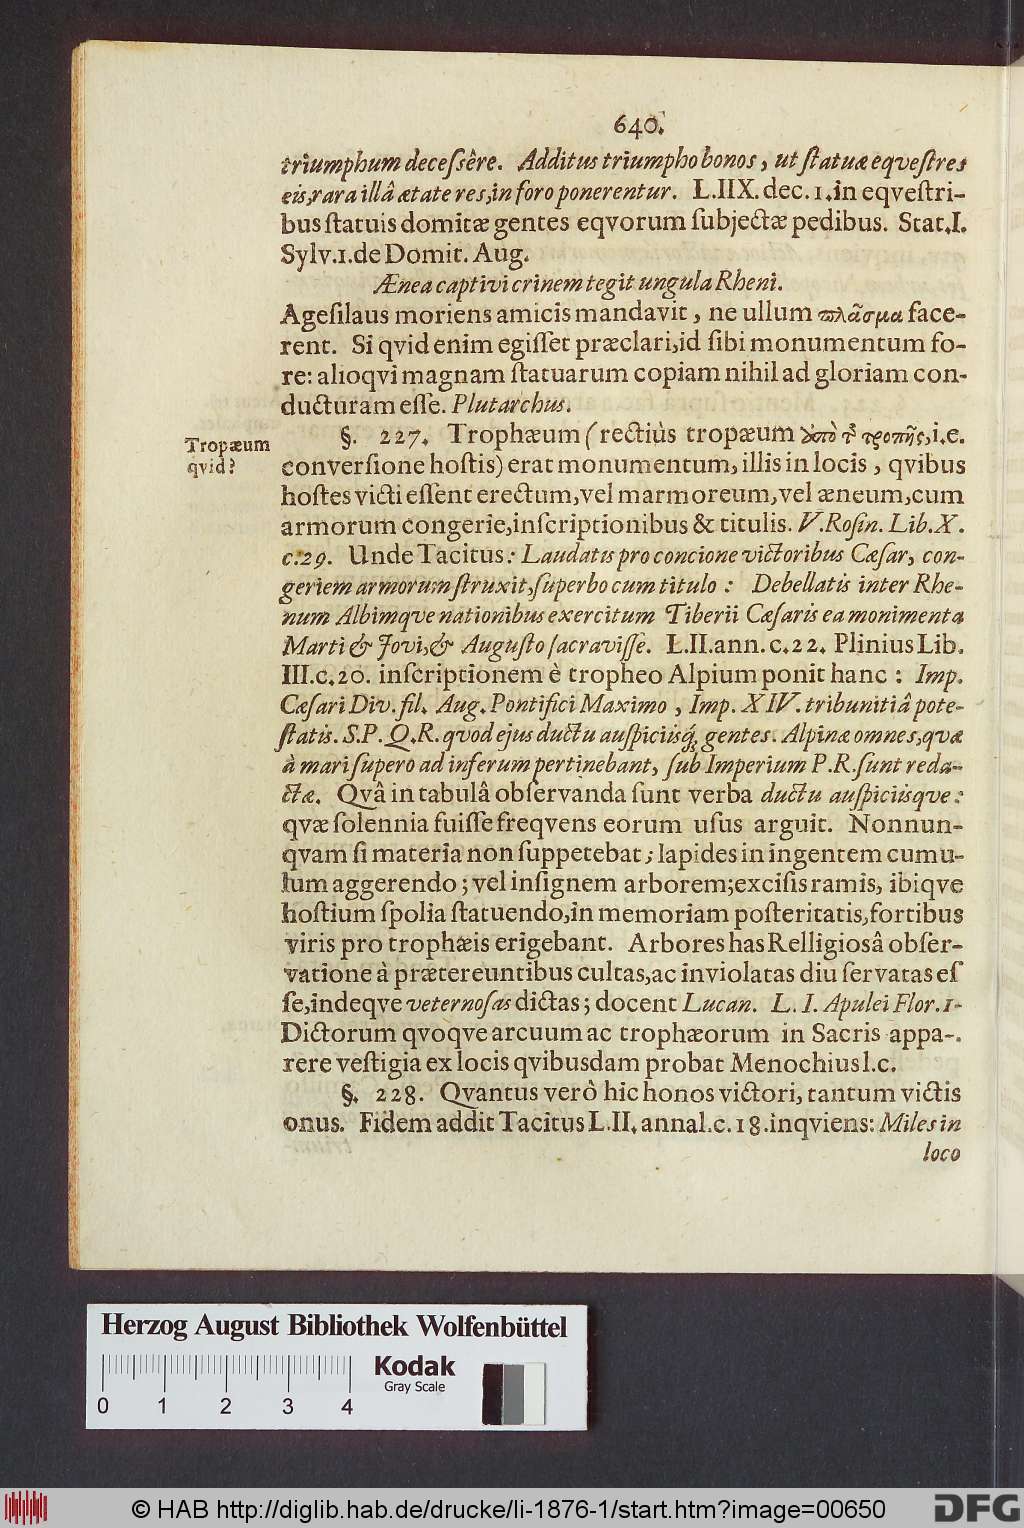 640.
triumphum deceſſêre. Additus triumpho honos, ut ſtatuæ eqveſtres
eis, rara illâ ætate res, in foro ponerentur. L.IIX. dec. 1. in eqveſtri-
bus ſtatuis domitæ gentes eqvorum ſubjectæ pedibus. Stat. I.
Sylv. 1. de Domit. Aug.
Ænea captivi crinem tegit ungula Rheni.
Ageſilaus moriens amicis mandavit, ne ullum πλᾶσμα face-
rent. Si qvid enim egiſſet præclari, id ſibi monumentum fo-
re: alioqvi magnam ſtatuarum copiam nihil ad gloriam con-
ducturam eſſe. Plutarchus.
Tropæum
qvid?
§. 227. Trophæum (rectiùs tropæum ἀπὸ τῆς τροπῆς, i.e.
converſione hoſtis) erat monumentum, illis in locis, qvibus
hoſtes victi eſſent erectum, vel marmoreum, vel æneum, cum
armorum congerie, inſcriptionibus & titulis. V. Roſin. Lib. X.
c. 29. Unde Tacitus: Laudatis pro concione victoribus Cæſar, con-
geriem armorum ſtruxit, ſuperbo cum titulo: Debellatis inter Rhe-
num Albimqve nationibus exercitum Tiberii Cæſaris ea monimenta
Marti & Jovi, & Auguſto ſacraviſſe. L.II. ann. c. 22. Plinius Lib.
III. c. 20. inſcriptionem è tropheo Alpium ponit hanc: Imp.
Cæſari Div. fil. Aug. Pontifici Maximo, Imp. XIV. tribunitiâ pote-
ſtatis. S.P. Q.R. quod ejus ductu auſpiciisq́; gentes. Alpinæ omnes, qvæ
à mari ſupero ad inferum pertinebant, ſub Imperium P.R. ſunt reda-
ctæ. Qvâ in tabulâ obſervanda ſunt verba ductu auſpiciisque:
qvæ ſolennia fuiſſe freqvens eorum uſus arguit. Nonnun-
qvam ſi materia non ſuppetebat; lapides in ingentem cumu-
lum aggerendo; vel inſignem arborem; exciſis ramis, ibiqve
hoſtium ſpolia ſtatuendo, in memoriam poſteritatis, fortibus
viris pro trophæis erigebant. Arbores has Relligiosâ obſer-
vatione à prætereuntibus cultas, ac inviolatas diu ſervatas eſ
ſe, indeqve veternoſas dictas; docent Lucan. L. I. Apulei Flor. 1-
Dictorum qvoqve arcuum ac trophæorum in Sacris appa-.
rere veſtigia ex locis qvibusdam probat Menochius l.c.
§. 228. Qvantus verò hic honos victori, tantum victis
onus. Fidem addit Tacitus L.II. annal. c. 18. inqviens: Miles in
loco
Herzog August Bibliothek Wolfenbüttel
Kodak
Gray Scale
0 1 2 3 4
© HAB http://diglib.hab.de/drucke/li-1876-1/start.htm?image=00650
DFG